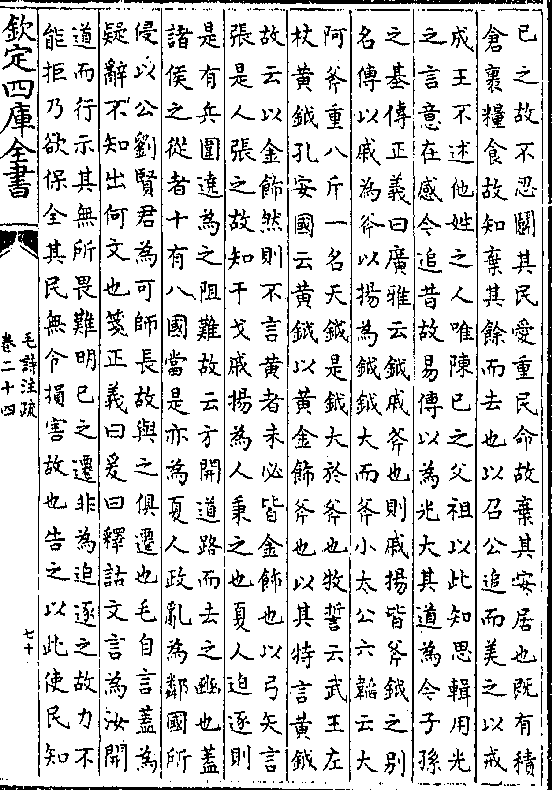 已之故不忍鬭其民愛重民命故棄其安居也既有積
倉裹糧食故知棄其餘而去也以召公追而美之以戒
成王不述他姓之人唯陳已之父祖以此知思輯用光
之言意在感令追昔故易傳以為光大其道為令子孫
之基傳正義曰廣雅云鉞戚斧也則戚揚皆斧鉞之别
名傳以戚為斧以揚為鉞鉞大而斧小太公六韜云大
阿斧重八斤一名天鉞是鉞大於斧也牧誓云武王左
杖黄鉞孔安國云黄鉞以黄金飾斧也以其特言黄鉞
故云以金飾然則不言黄者未必皆金飾也以弓矢言
張是人張之故知干戈戚揚為人秉之也夏人迫逐則
是有兵圍遶為之阻難故云方開道路而去之豳也蓋
諸侯之從者十有八國當是亦為夏人政亂為鄰國所
侵以公劉賢君為可師長故與之俱遷也毛自言蓋為
疑辭不知出何文也箋正義曰爰曰釋詁文言為汝開
道而行示其無所畏難明已之遷非為迫逐之故力不
能拒乃欲保全其民無令損害故也告之以此使民知
欽定四庫全書
毛詩注疏
卷二十四
七十